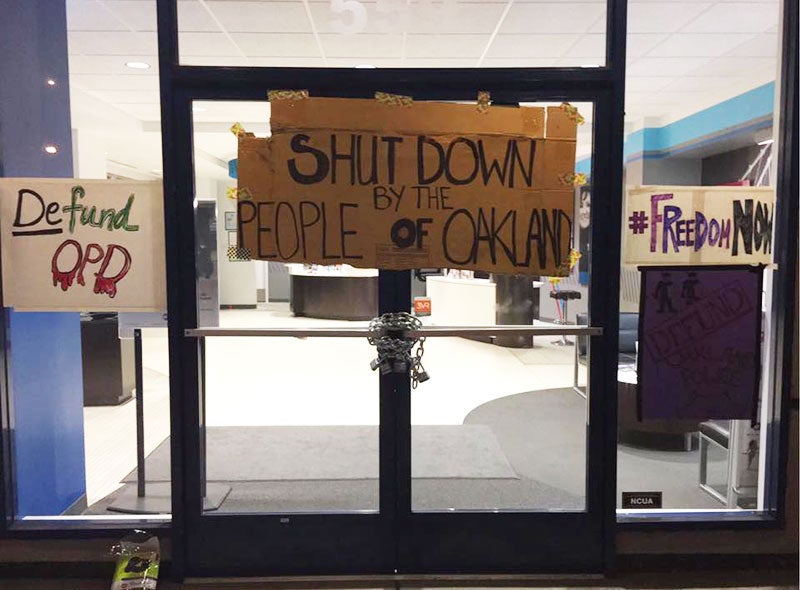 SHUT DOWN
BY THE
PEOPLE OF OAKLAND
Defund
OPD
#FREEDOM NOW
DEFUND
NCUA